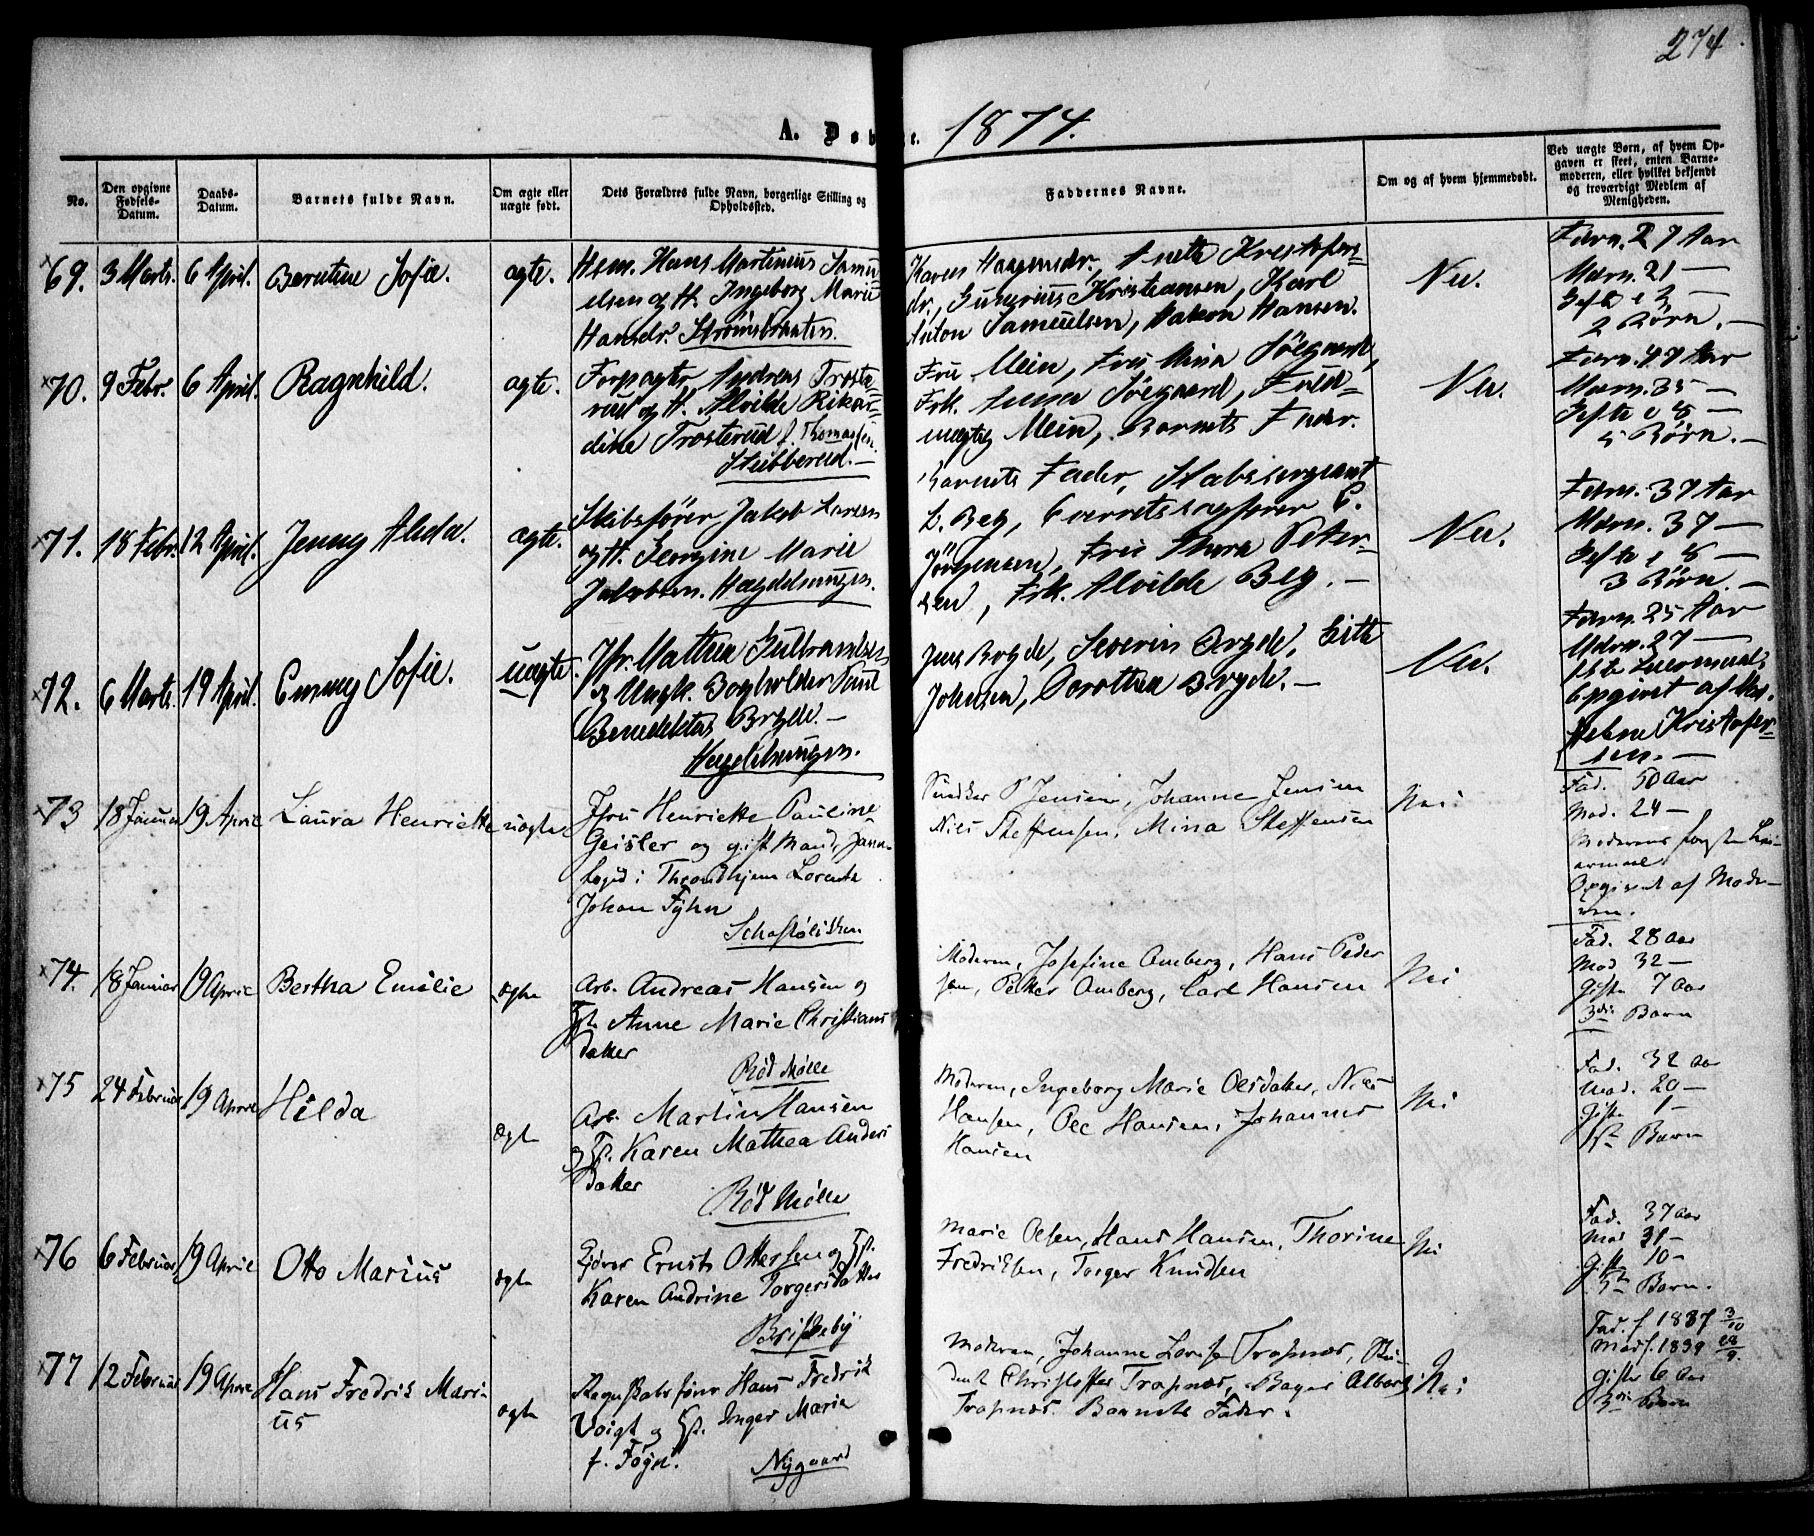 274
A. Døb e. 1874.
No.
Den opgivne Fødsels-Datum.
Daabs-Datum.
Barnets fulde Navn.
Om ægte eller uægte født.
Dets Forældres fulde Navn, borgerlige Stilling og Opholdssted.
Faddernes Navne.
Om og af hvem hjemmedøbt.
Ved uægte Børn, af hvem Opgaven er skeet, enten Barnemoderen, eller hvilket bekjendt og troværdigt Medlem af Menigheden.
69. 3 Marts. 6 April. Berntine Sofie. ægte.
Hans Martinius Samu
elsen og H. Ingeborg Marie
Hansdr. Strømsbraaten.
Karen Haagensdr. Anette Kristofers
dr., Kristiansen, Karl
Anton Samuelsen, Hakon Hansen.
Nei.
Færn. 27 Aar
Mærn. 21 —
Gifte i 2 —
2 Børn. —
70. 9 Febr. 6 April. Ragnhild. ægte.
Forpagter Andreas Troste
rud og H. Alvilde Rikar
dine Trosterud f. Thomassen
Stubberud. —
Fru Mein, Fru Mina Söegaard,
Frk. Anna Söegaard, Fuld-
mægtig Mein, Barnets Fader.
Nei.
Færn. 47 Aar
Mærn. 35 —
Gifte i 8 —
5 Børn. —
71. 18 Febr. 12 April. Jenny Alida. ægte.
Skibsfører Jakob Larsen
og H. Georgine Marie
Jakobsen. Hægdehaugen.
Barnets Fader, Stabssergeant
L. Beg, Overretssagfører C.
Jörgensen, Fru Thora Peter-
sen, Frk. Alvilde Beg. —
Nei.
Færn. 37 Aar
Mærn. 37 —
Gifte i 8 —
3 Børn. —
72. 6 Marts. 19 April. Emmy Sofie. uægte.
Jfr. Mathea Gulbrandsen
og Ungk. Bogholder Paul
Benediktus Bryde. —
Hægdehaugen.
Jens Bryde, Severin Bryde, Gitte
Johnsen, Dorothea Bryde. —
Nei.
Færn. 25 Aar
Mærn. 27 —
1ste Leiermaal.
Opgivet af Mad.
Helene Kristofer-
sen. —
73 18 Januar 19 April Laura Henriette uægte
Jfru Henriette Pauline
Geisler og gift Mand,
i Throndhjem Lorents
Johan Fyhn
Schafteløkken
Snedker P Jensen, Johanne Jensen
Niels Steffensen, Mina Steffensen
Nei
Fad. 50 Aar
Mod. 24 —
Moderens første Lei-
ermaal
Opgivet af Mode-
ren.
74. 18 Januar 19 April Bertha Emilie ægte
Arb. Andreas Hansen og
H. Anne Marie Christians
datter
Rød Mølle
Moderen, Josefine Amberg, Hans Peder
sen, Petter Amberg, Carl Hansen
Nei
Fad. 28 Aar
Mod 32 —
Gifte 7 Aar
3die Barn
75 24 Februar 19 April Hilda ægte
Arb. Martin Hansen
og H. Karen Mathea Anders
datter
Rød Mølle
Moderen, Ingeborg Marie Olsdatter, Niels
Hansen, Ole Hansen, Johannes
Hansen
Nei
Fad. 32 Aar
Mod. 20 —
Gifte 1 —
1ste Barn
76 6 Februar 19 April Otto Marius ægte
Ernst Ottersen og H.
Karen Andrine Torgersdatter
Briskeby
Marie Olsen, Hans Hansen, Thorine
Fredriksen, Torger Knudsen
Nei
Fad. 37 Aar
Mod 31 —
Gifte 10 —
5te Barn.
77 12 Februar 19 April Hans Fredrik Mari
us ægte
Regnskabsfører Hans Fredrik
Voigt og H. Inger Marie
f. Føyn.
Nygaard
Moderen, Johanne Lovise Trapnæs, Stu-
dent Christoffer Trapnæs, Bager Albert
Trapnæs. Barnets Fader.
Nei
Fad. f 1837 3/10
Mod f. 1839
Gifte 6 Aar
3die Barn